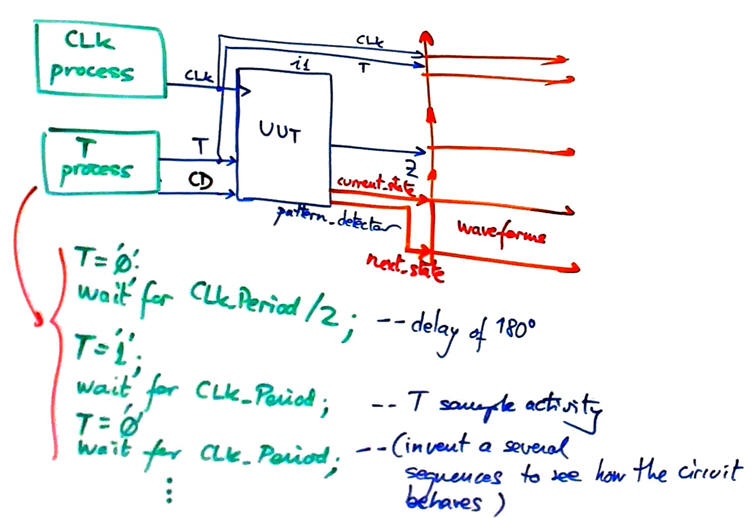 CLK
process
CLK
T
process
T
CD
i1
UUT
CLK
T
Z
current_state
pattern_detector
next_state
waveforms
T='0'.
wait for CLK_Period/2; -- delay of 180°
T='1';
wait for CLK_Period; -- T sample activity
T='0'
wait for CLK_Period; --(invent a several
sequences to see how the circuit
behares)
⋮